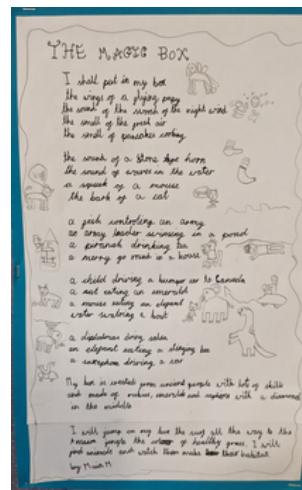 THE MAGIC BOX
I shall put in my box
the wings of a flying
the sound of the of the night wind
the smell of the fresh air
the smell of pancakes cooking
the sound of a stone age horn
the sound of waves in the water
a squeak of a mouse
the bark of a cat
a fish controling an army
an army leader swimming in a pond
a piranah drinking tea
a merry go in a house
a child driving a bumper car to Canada
a eating an emerald
a mouse eating an
water a boat
a doing salsa
an elepant eating a stinging bee
a saxophone driving a car
My box is created from ancient people with lots of skills
and made of rubies, emeralds and with a diamond
in the middle
I will jump on my box the all the way to the
jungle the of healthy grass. I will
find animals and watch them make their habitat
by M